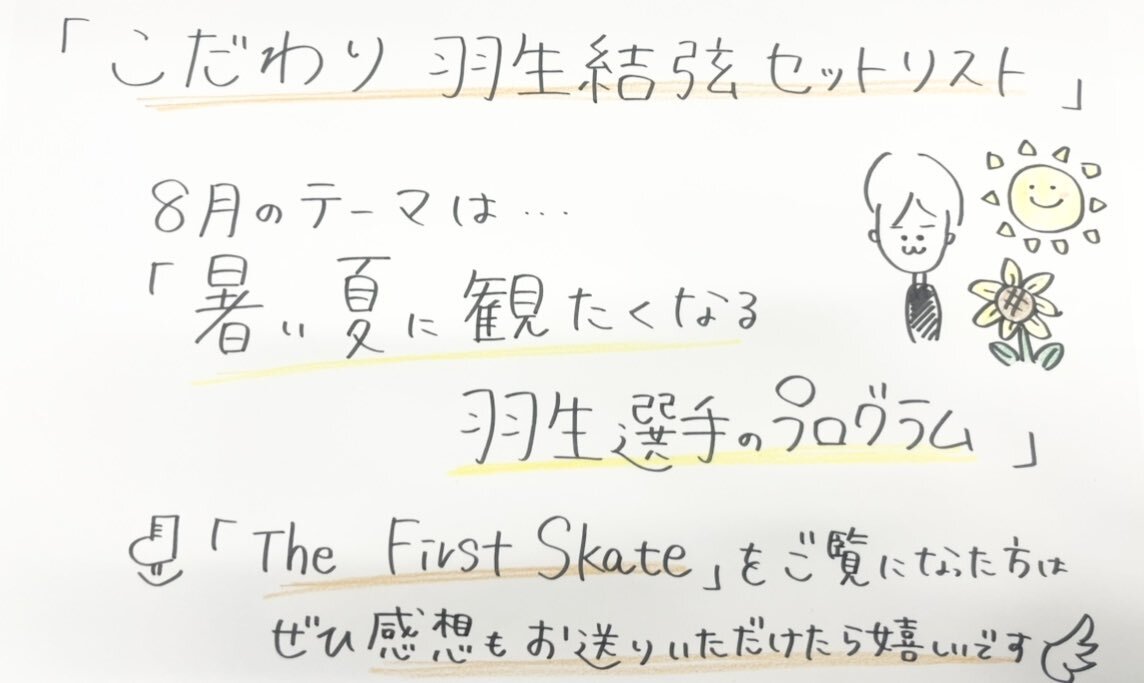 「こだわり 羽生結弦セットリスト」
8月のテーマは…
「暑い夏に観たくなる
羽生選手のプログラム」
「The First Skate」をご覧になった方は
ぜひ感想もお送りいただけたら嬉しいです